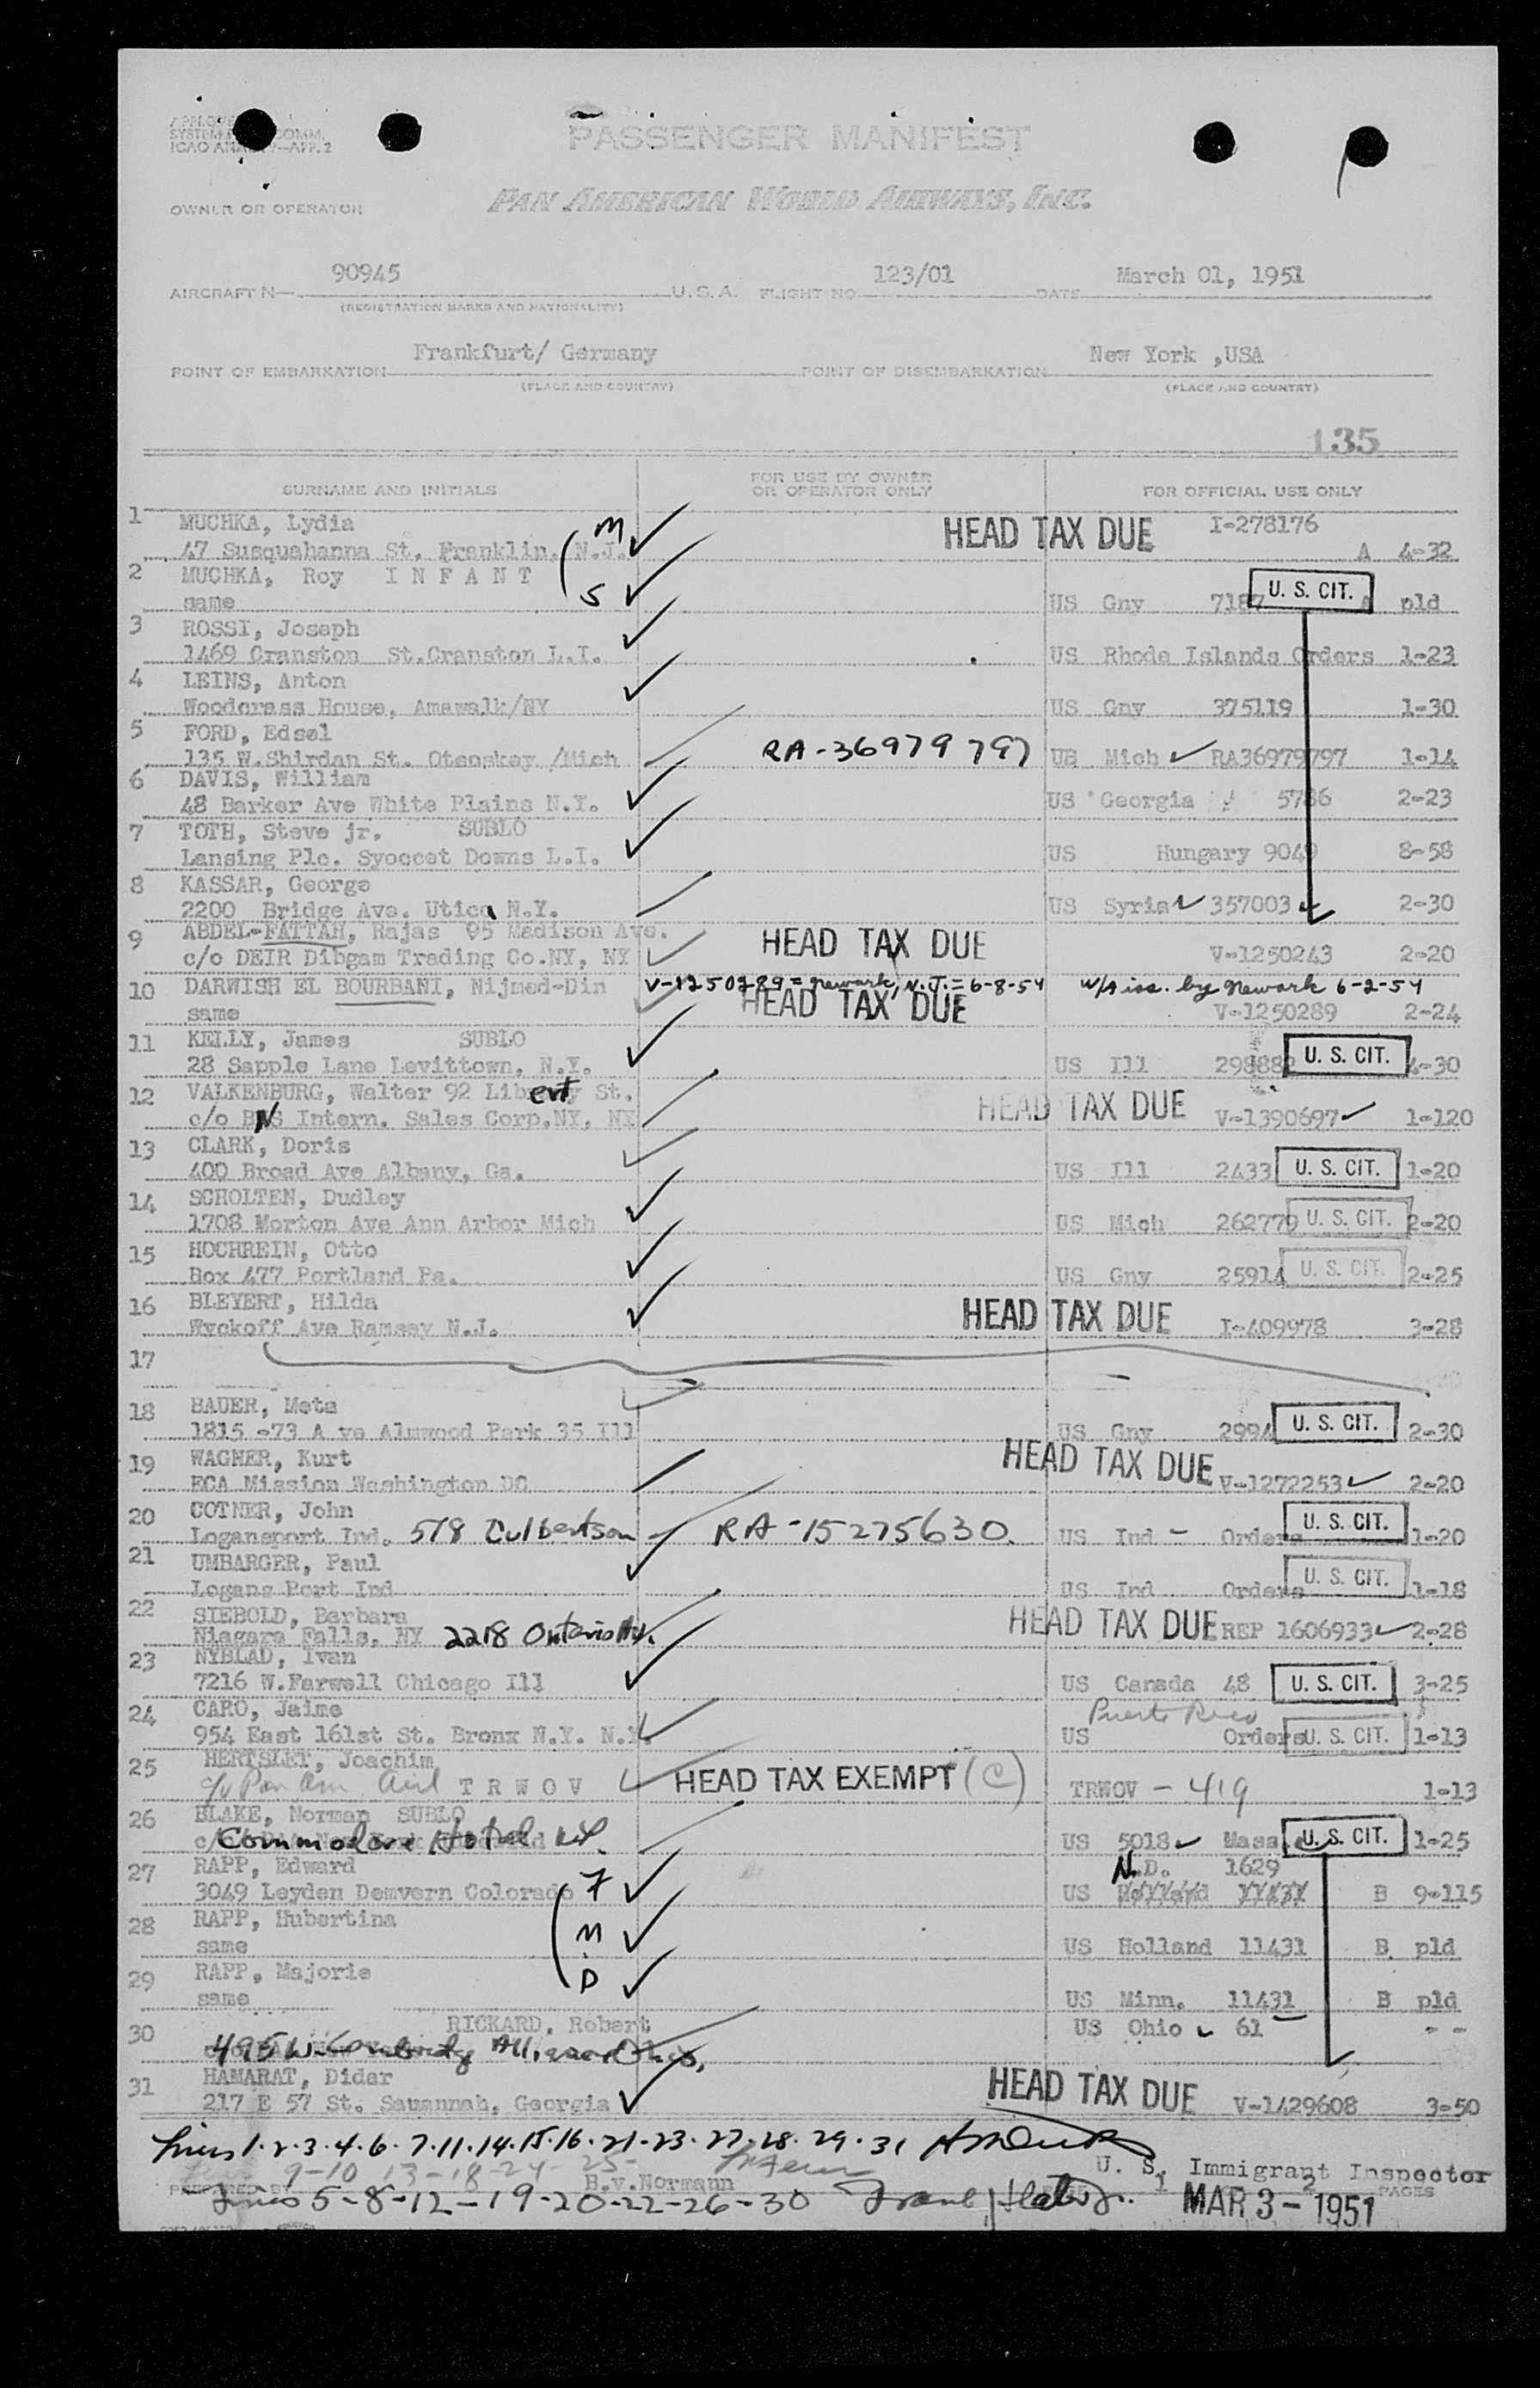 PASSENGER MANIFEST
OWNER OR OPERATOR PAN AMERICAN WORLD AIRWAYS, INC.
AIRCRAFT N— 90945 U.S.A. FLIGHT NO. 123/01 DATE March 01, 1951
(REGISTRATION MARKS AND NATIONALITY)
POINT OF EMBARKATION Frankfurt/ Germany POINT OF DISEMBARKATION New York ,USA
(PLACE AND COUNTRY) (PLACE AND COUNTRY)
135
SURNAME AND INITIALS FOR USE BY OWNER OR OPERATOR ONLY FOR OFFICIAL USE ONLY
1 MUCHKA, Lydia M HEAD TAX DUE I-278176
47 Susquahanna St. Franklin, N.J. A 4-32
2 MUCHKA, Roy I N F A N T
same S US Gny 7187 U. S. CIT. pld
3 ROSSI, Joseph
1469 Cranston St.Cranston L.I. US Rhode Islands Orders 1-23
4 LEINS, Anton
Woodcrass House, Amawalk/NY US Gny 375119 1-30
5 FORD, Edsel
135 W.Shirdan St. /Mich RA-36979797 US Mich RA36979797 1-14
6 DAVIS, William
48 Barker Ave White Plains N.Y. US Georgia 5786 2-23
7 TOTH, Steve jr. SUBLO
Lansing Plc. Syoccet Downs L.I. US Hungary 9049 8-58
8 KASSAR, George
2200 Bridge Ave. Utica N.Y. US Syria 357003 2-30
9 ABDEL-FATTAH, Rajas 95 Madison Ave.
c/o DEIR Dibgam Trading Co.NY, NY HEAD TAX DUE V-1250243 2-20
10 DARWISH EL BOURBANI, Nijmed-Din V-1250289 = Newark, N.J. = 6-8-54 W/A iss. by Newark 6-2-54
same HEAD TAX DUE V-1250289 2-24
11 KELLY, James SUBLO
28 Sapple Lane Levittown, N.Y. US Ill 298882 U. S. CIT. 4-30
12 VALKENBURG, Walter 92 Liberty St.
c/o BNS Intern. Sales Corp.NY, NY HEAD TAX DUE V-1390697 1-120
13 CLARK, Doris
400 Broad Ave Albany, Ga. US Ill 2433 U. S. CIT. 1-20
14 SCHOLTEN, Dudley
1708 Morton Ave Ann Arbor Mich US Mich 262779 U. S. CIT. 2-20
15 HOCHREIN, Otto
Box 477 Portland Pa. US Gny 25914 U. S. CIT. 2-25
16 BLEYERT, Hilda
Wyckoff Ave Ramsey N.J. HEAD TAX DUE I-409978 3-28
17
18 BAUER, Meta
1815 -73 A ve Almwood Park 35 Ill US Gny 2994 U. S. CIT. 2-30
19 WAGNER, Kurt
ECA Mission Washington DC HEAD TAX DUE V-1272253 2-20
20 COTNER, John
Logansport Ind. 518 Culbertson RA-15275630. US Ind - Orders U. S. CIT. 1-20
21 UMBARGER, Paul
Logans Port Ind US Ind Orders U. S. CIT. 1-18
22 SIEBOLD, Barbara
Niagara Falls, NY 2218 Ontario Av. HEAD TAX DUE REP 1606933 2-28
23 NYBLAD, Ivan
7216 W.Farwell Chicago Ill US Canada 48 U. S. CIT. 3-25
24 CARO, Jaime Puerto Rico
954 East 161st St. Bronx N.Y. N.Y. US Orders U. S. CIT. 1-13
25 HERTSLET, Joachim
c/o Pan Am Airl T R W O V HEAD TAX EXEMPT (C) TRWOV - 419 1-13
26 BLAKE, Norman SUBLO
Commodore Hotel NY. US 5018 Mass. U. S. CIT. 1-25
27 RAPP, Edward N.D. 1629
3049 Leyden Demvern Colorado F US B 9-115
28 RAPP, Hubertina
same M US Holland 11431 B pld
29 RAPP, Majorie
same D US Minn. 11431 B pld
30 RICKARD, Robert US Ohio 61 - -
495 W. Cambridge Alliance Ohio,
31 HAMARAT, Didar
217 E 57 St. Savannah, Georgia HEAD TAX DUE V-1429608 3-50
Lines 1-2-3-4-6-7-11-14-15-16-21-23-27-28-29-31
9-10 13-18-24-25-
PREPARED BY B.v.Normann U. S. Immigrant Inspector
Lines 5-8-12-19-20-22-26-30 1 2 PAGES
MAR 3- 1951